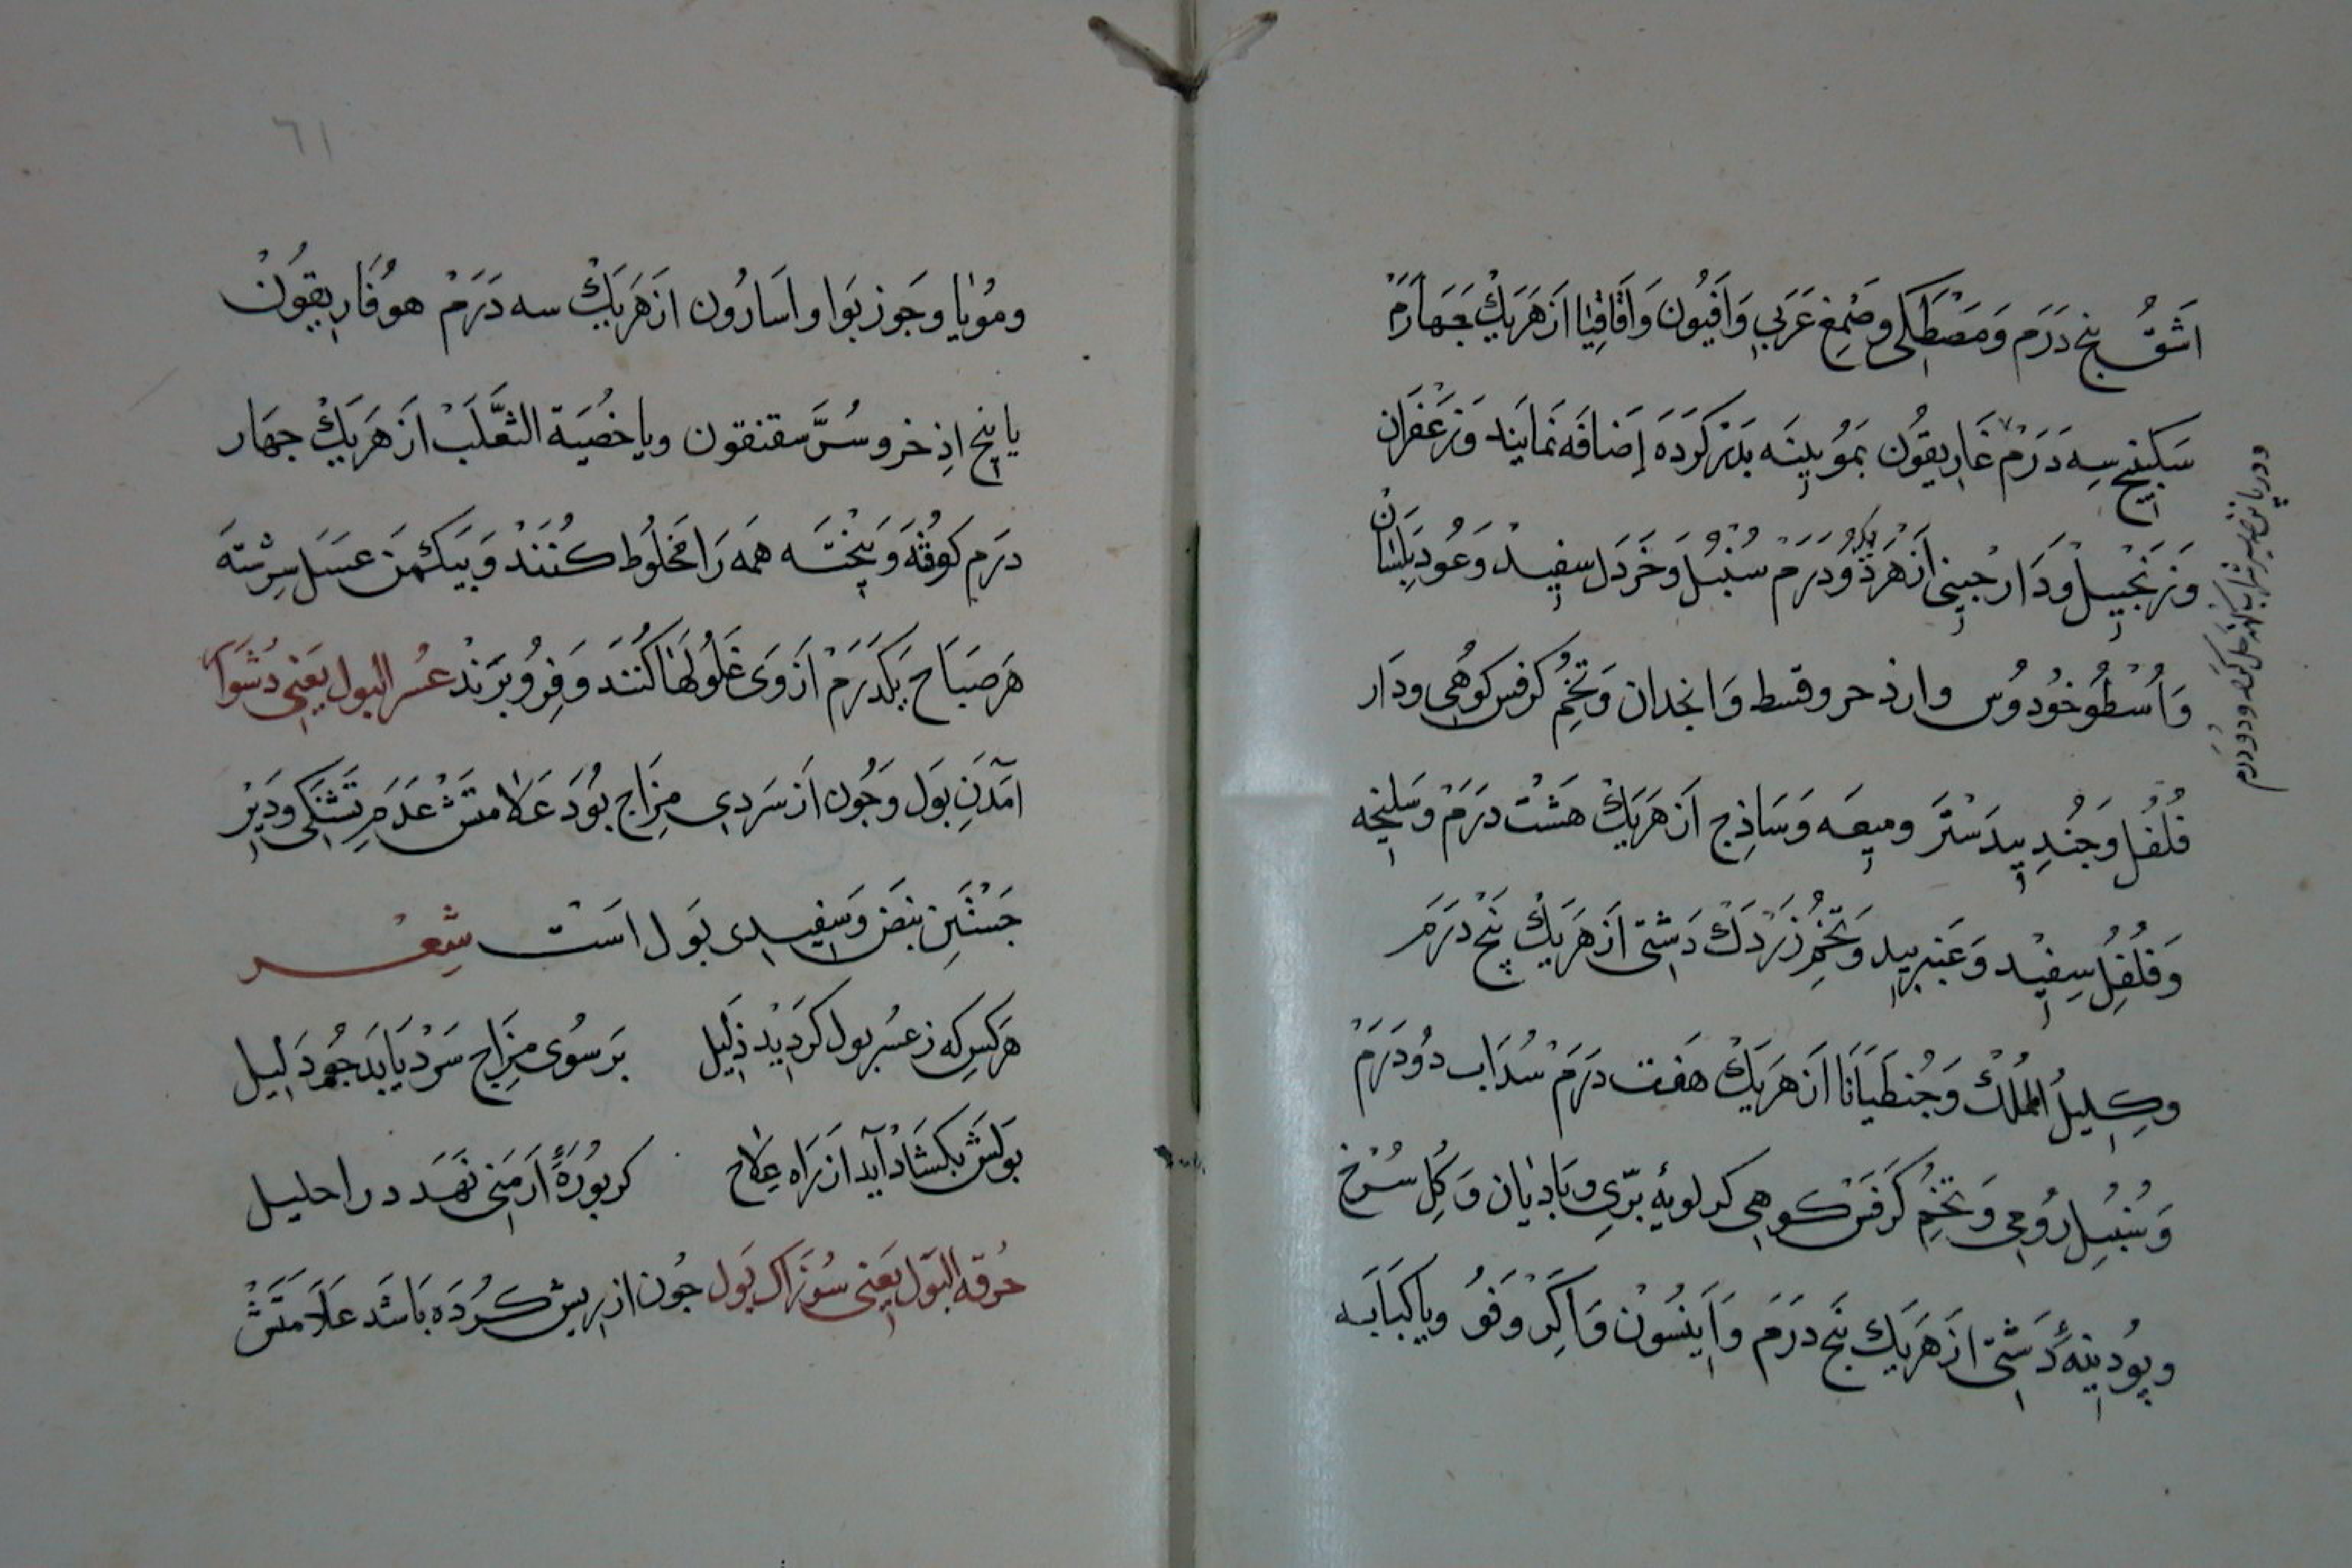 اَشَقُ پنج دَرَم وَمَصْطَكی وصَمْغِ عَرَبی وَاَفیُون وَاَقَاقِیَا اَزهَرَیَكْ جَهارَمْ
سَكبینج سِه دَرَمْ غَاریقُون بَمُویینَه بَدَر كَردَه اِضَافَه نَمایَند وَزَعْفَرَان
وَزَنجَبِیل ودَارْجینی اَزهَر دُودَرَم سُنْبُل وَخَردَل سفیدْ وَعُود بَلَسَان
وَاُسْطُوخُودُوس واذخر وقسط وَانجدان وَتُخْمِ كرفس كوُهی ودَار
فُلْفُل وَجُندِ بیدَسْتَر ومیعَه وَسَاذِج اَزهَرَیَكْ هَشْتْ دَرَمْ وسَلیخه
وَفُلْفُلِ سِفیْد وَعَنبربید وَتُخْمِ زَرْدَكْ دَشْتی اَزهَرَیَكْ پَنْج دَرَمَ
وكِلِیلُ المُلْكْ وَجُنطَیَانَا اَزهَرَیَكْ هَفت دَرَمْ سُدَاب دُودَرَمْ
وَسُنْبُلِ رُومی وَتُخْمِ كَرَفَسْ كوهی كر لویهٔ بَرّی وبَادیَان وَكُلِ سُرْخ
وپُودینهٔ دَشْتی ازهَرَیَك پنج دَرَمَ وَاَنیسُونْ وَاَكِرْ وَفُو ویا كَبَابَه
٦١
ومُویَا وجَوز بَوَا واسَارُون ازهَرَیَكْ سه دَرَمْ هوُفَاریقُونْ
یا بیخ اذِخر وسُرَّسقنقون ویا خصْیَة الثَّعلَبْ ازهَرَیَكْ جهَار
درَم كوفْتَه وَبیخْتَه همَه رَا مَخلُوط كُنَندْ وَبَیَكْمَن عسَل سِرِشتَه
هَرصَبَاح یَكدَرَمْ اَز وَی غَلُولهَا كُنَند وَفِرُو بَرَندْ عُسر البول یَعنی دُشوَار
آمَدَنِ بَول وَجُون اَز سَردی مِزَاج بُوَد عَلامتَشْ عَدَم تَشنَكی ودَیر
جَسْتَنِ نبَض وَسَفیدی بَول اسَت شِعْر
هَركس كه زعُسر بول كَردید ذَلیل بَر سُوی مِزَاج سَرْد یَابَد جُو دَلیل
بَولَش بكشَاد آید از رَاه عِلاج كر بُورَهٔ اَرمَنی نَهَد در احلیل
حُرقه البَول یَعنی سُوزَاك بَول جُون از ریش كَردَه بَاشَد عَلاَمَتَشْ